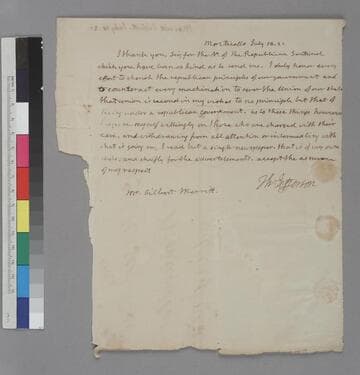 Monticello July 12. 21.
I thank you, Sir, for the No. of the Republican Sentinel
which you have been so kind as to send me. I duly honor every
effort to cherish the republican principles of our government and
to counteract every machination to sever the Union of our States
that union is second in my wishes to no principle but that of
living under a republican government. as to these things however
I on myself willingly on those who are charged with their
care, and withdrawing from all attention or intermeddling with
what is going on, I read but a single newspaper, that of my own
state, and chiefly for the advertisements. accept the assurance
of my respect
Th: Jefferson
Mr. Gilbert Merritt.